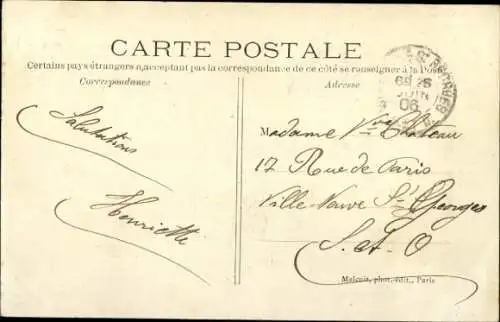 CARTE POSTALE
Certains pays étrangers n'acceptant pas la correspondance de ce côté se renseigner à la Poste
Correspondance
Adresse
Salutations
Henriette
Madame Vve Château
17 Rue de Paris
Ville-Neuve St Georges
S. et O
JUIN
06
Malcuit, phot. édit., Paris